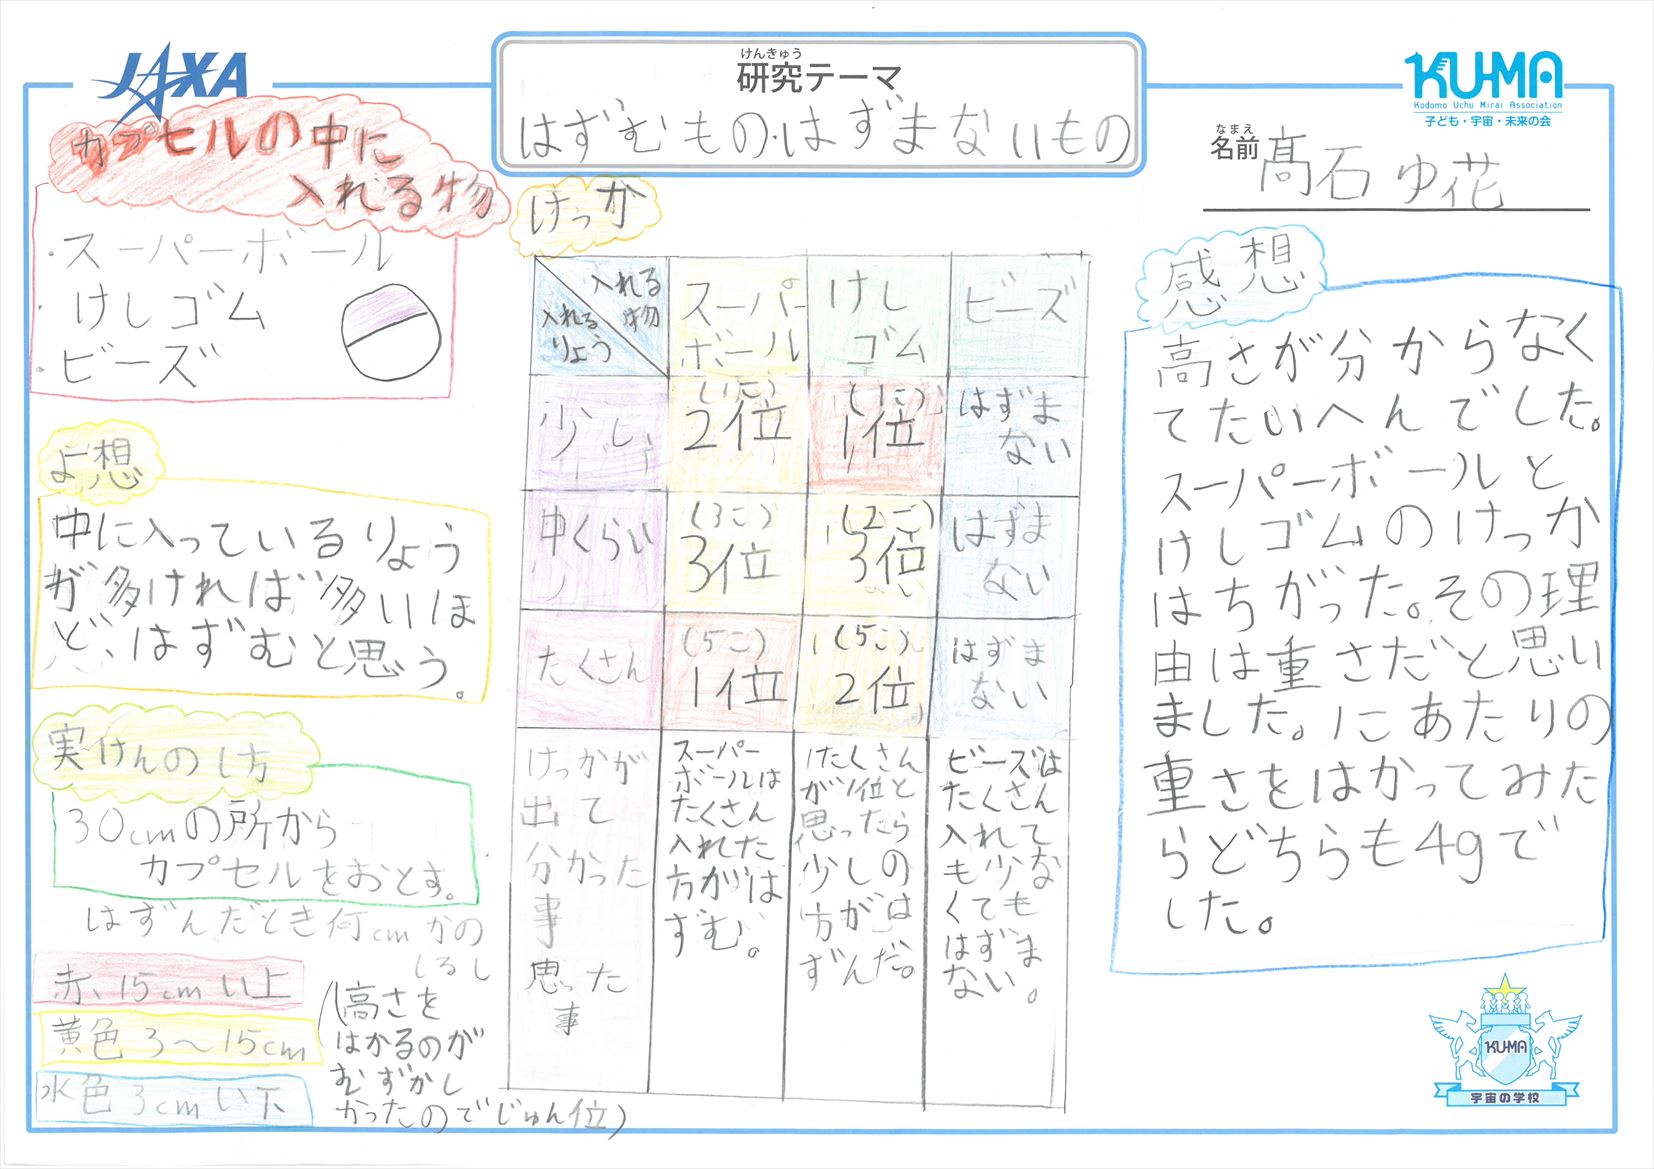 JAXA
けんきゅう
研究テーマ
はずむもの・はずまないもの
KU-MA
Kodomo Uchu Mirai Association
子ども・宇宙・未来の会
なまえ
名前 髙石 ゆ花
カプセルの中に
入れる物
・スーパーボール
・けしゴム
・ビーズ
よ想
中に入っているりょう
が多ければ多いほ
ど、はずむと思う。
実けんのし方
30cmの所から
カプセルをおとす。
はずんだとき何cmかの
しるし
赤、15cmい上
黄色3〜15cm
水色3cmい下
(高さを
はかるのが
むずかし
かったのでじゅん位)
けっか
入れる
物
入れる
りょう
スーパー
ボール
けし
ゴム
ビーズ
少し
(1こ)
2位
(1こ)
1位
はずま
ない
中くらい
(3こ)
3位
(2こ)
3位
はずま
ない
たくさん
(5こ)
1位
(5こ)
2位
はずま
ない
けっかが
出て
分かった
事
思った
事
スーパー
ボールは
たくさん
入れた
方がは
ずむ。
たくさん
が1位と
思ったら
少しの
方がは
ずんだ。
ビーズは
たくさん
入れて
も少な
くても
はずま
ない。
感想
高さが分からなく
てたいへんでした。
スーパーボールと
けしゴムのけっか
はちがった。その理
由は重さだと思い
ました。1こあたりの
重さをはかってみた
らどちらも4gで
した。
KUMA
宇宙の学校